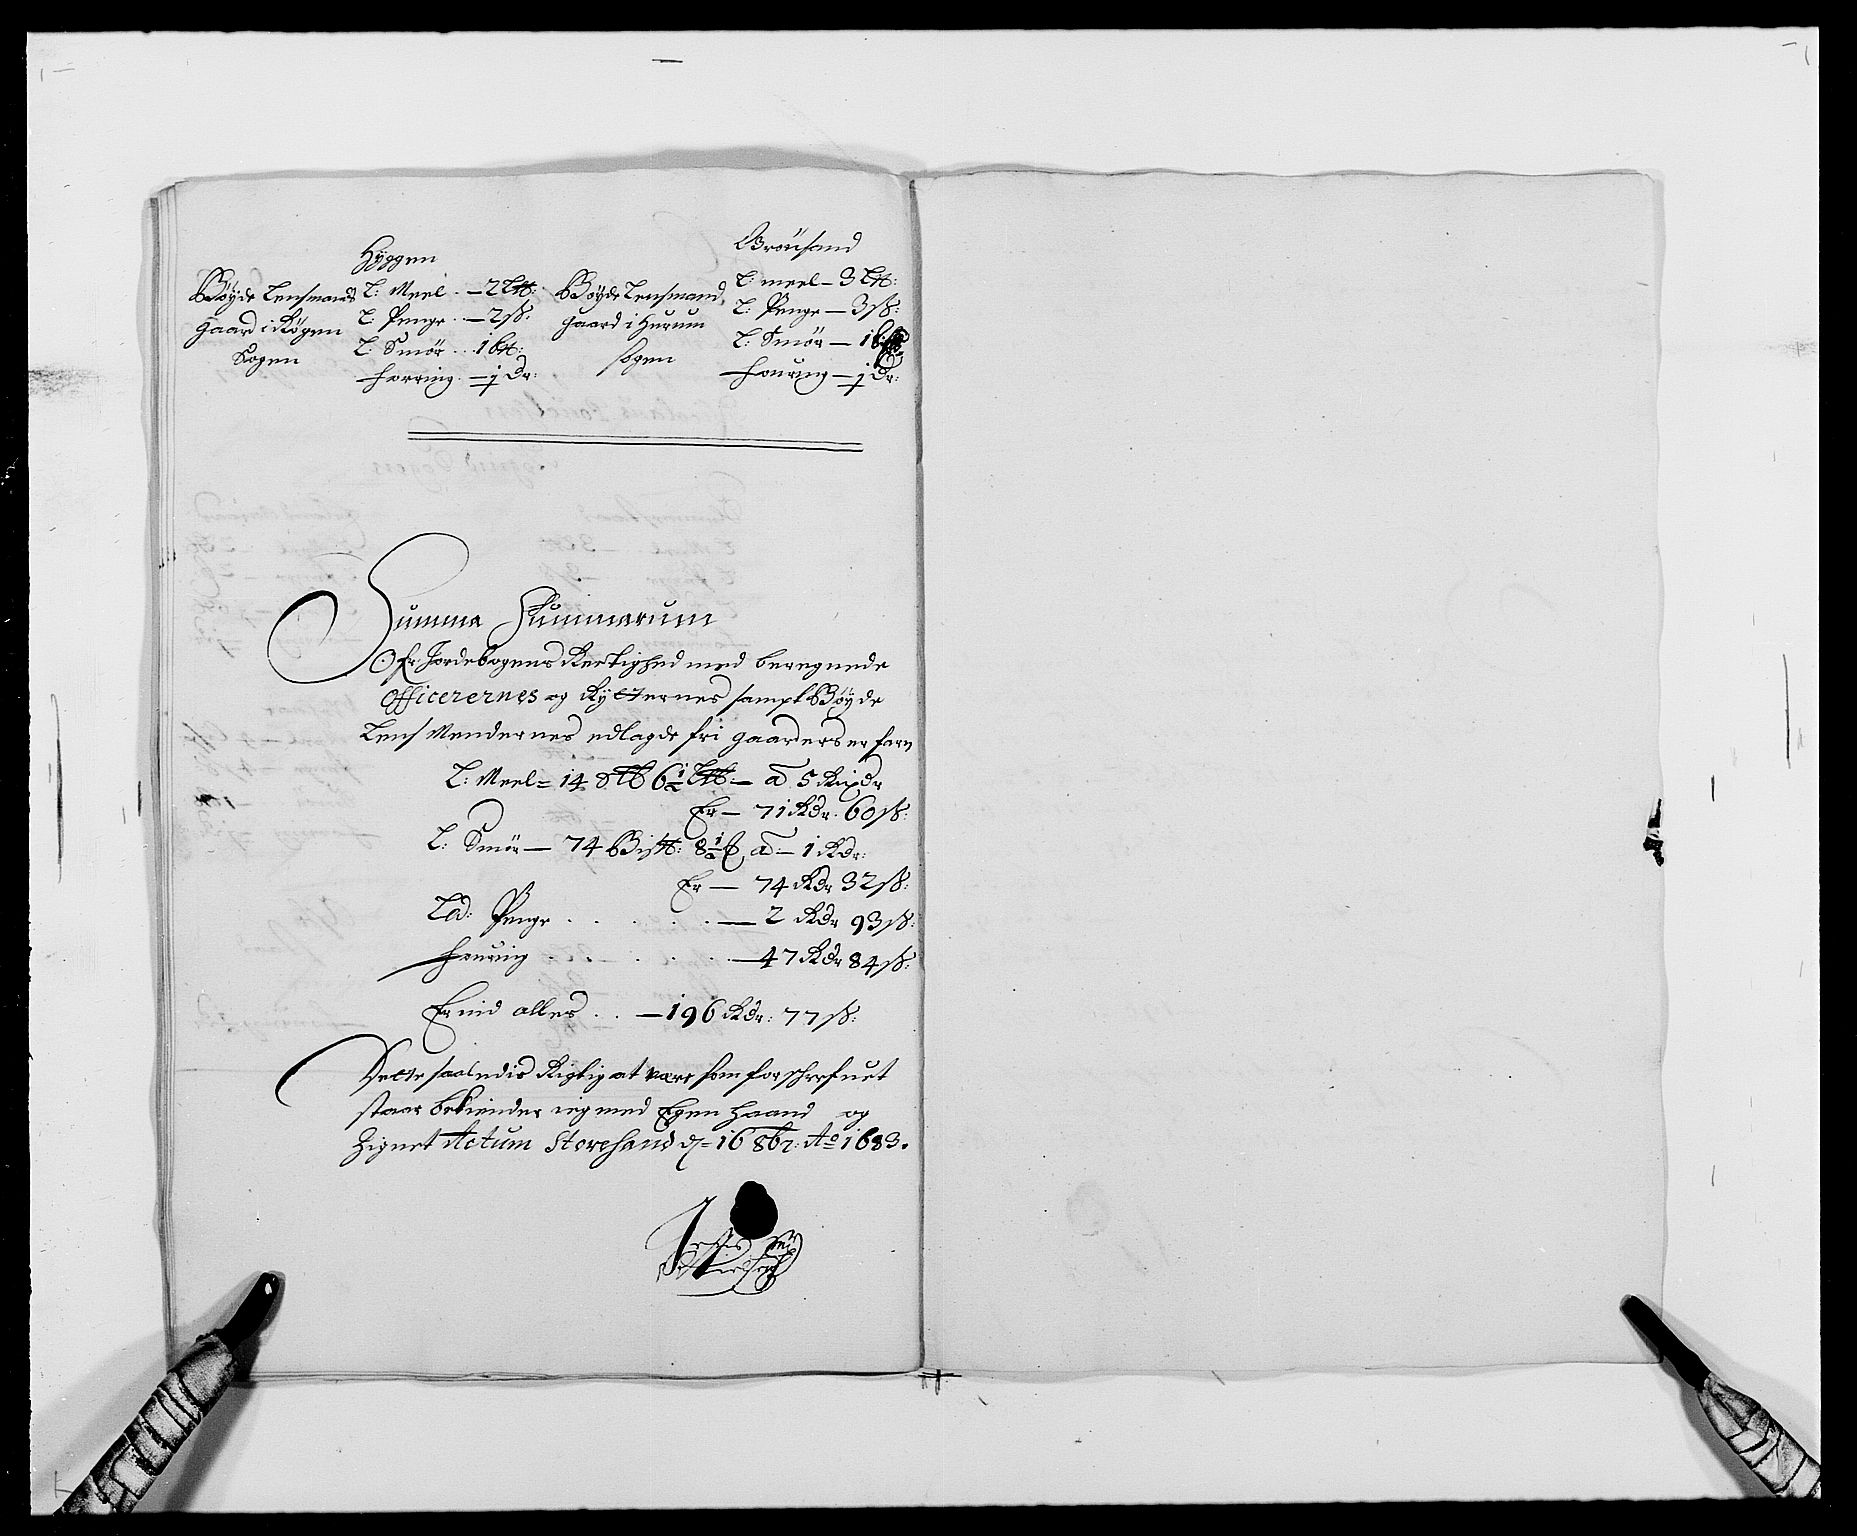 Hyggen
Böyde Lensmands
gaard i Røgen
Sogen
L: Meel — 2 Lt:
L: Penge — 2 ß:
L: Smör 1 bt:
forring — 1 Dr:
Gröusand
Böyde Lensmand
gaard i Hurum
sogen
L: meel — 3 Lt:
L: Penge — 3 ß:
L: Smör — 1
fouring — 1 Dr:
Summa Summarum
Ofr Jordebogens Rertighed med beregnede
Officerernes og Rytternes sampt Böyde
Lens Mendernes edlagde fri gaarders er farn
L: Meel = 14 6½ Lt — a 5 Rixdr
Er — 71 Rdr. 60 ß:
L: Smör — 74 Bist: 8½ a — 1 Rdr:
Er — 74 Rdr 32 ß:
Led: Penge . . . — 2 Rdr 93 ß:
fouring . . . — 47 Rdr 84 ß:
Er ind alles . . — 196 Rdr: 77 ß:
Dette saaledis Rigtig at være som forschrefuet
staar bekiender ieg med Egen haand og
Zignet Actum Storesand d = 16 8br: Ao 1683.